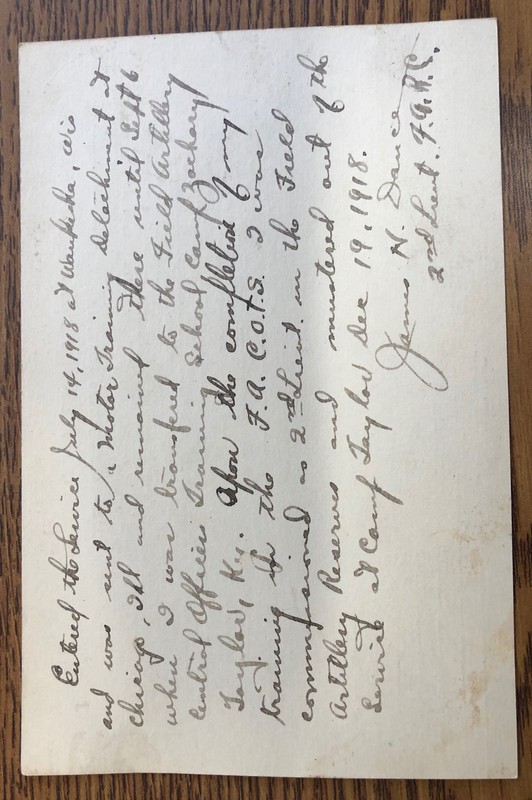 Entered the Service July 14, 1918 at Waukesha, Wis
and was sent to a Motor Training Detachment at
Chicago, Ill and remained there until Sept 6
when I was transfered to the Field Artillery
Central Officers Training School Camp Zachary
Taylor, Ky. Upon the completion of my
training in the F.A.C.O.T.S. I was
commissioned as 2nd Lieut. in the Field
Artillery Reserves and mustered out of the
Service at Camp Taylor Dec 19, 1918.
James N. Dance
2nd Lieut. F.A.R.C.